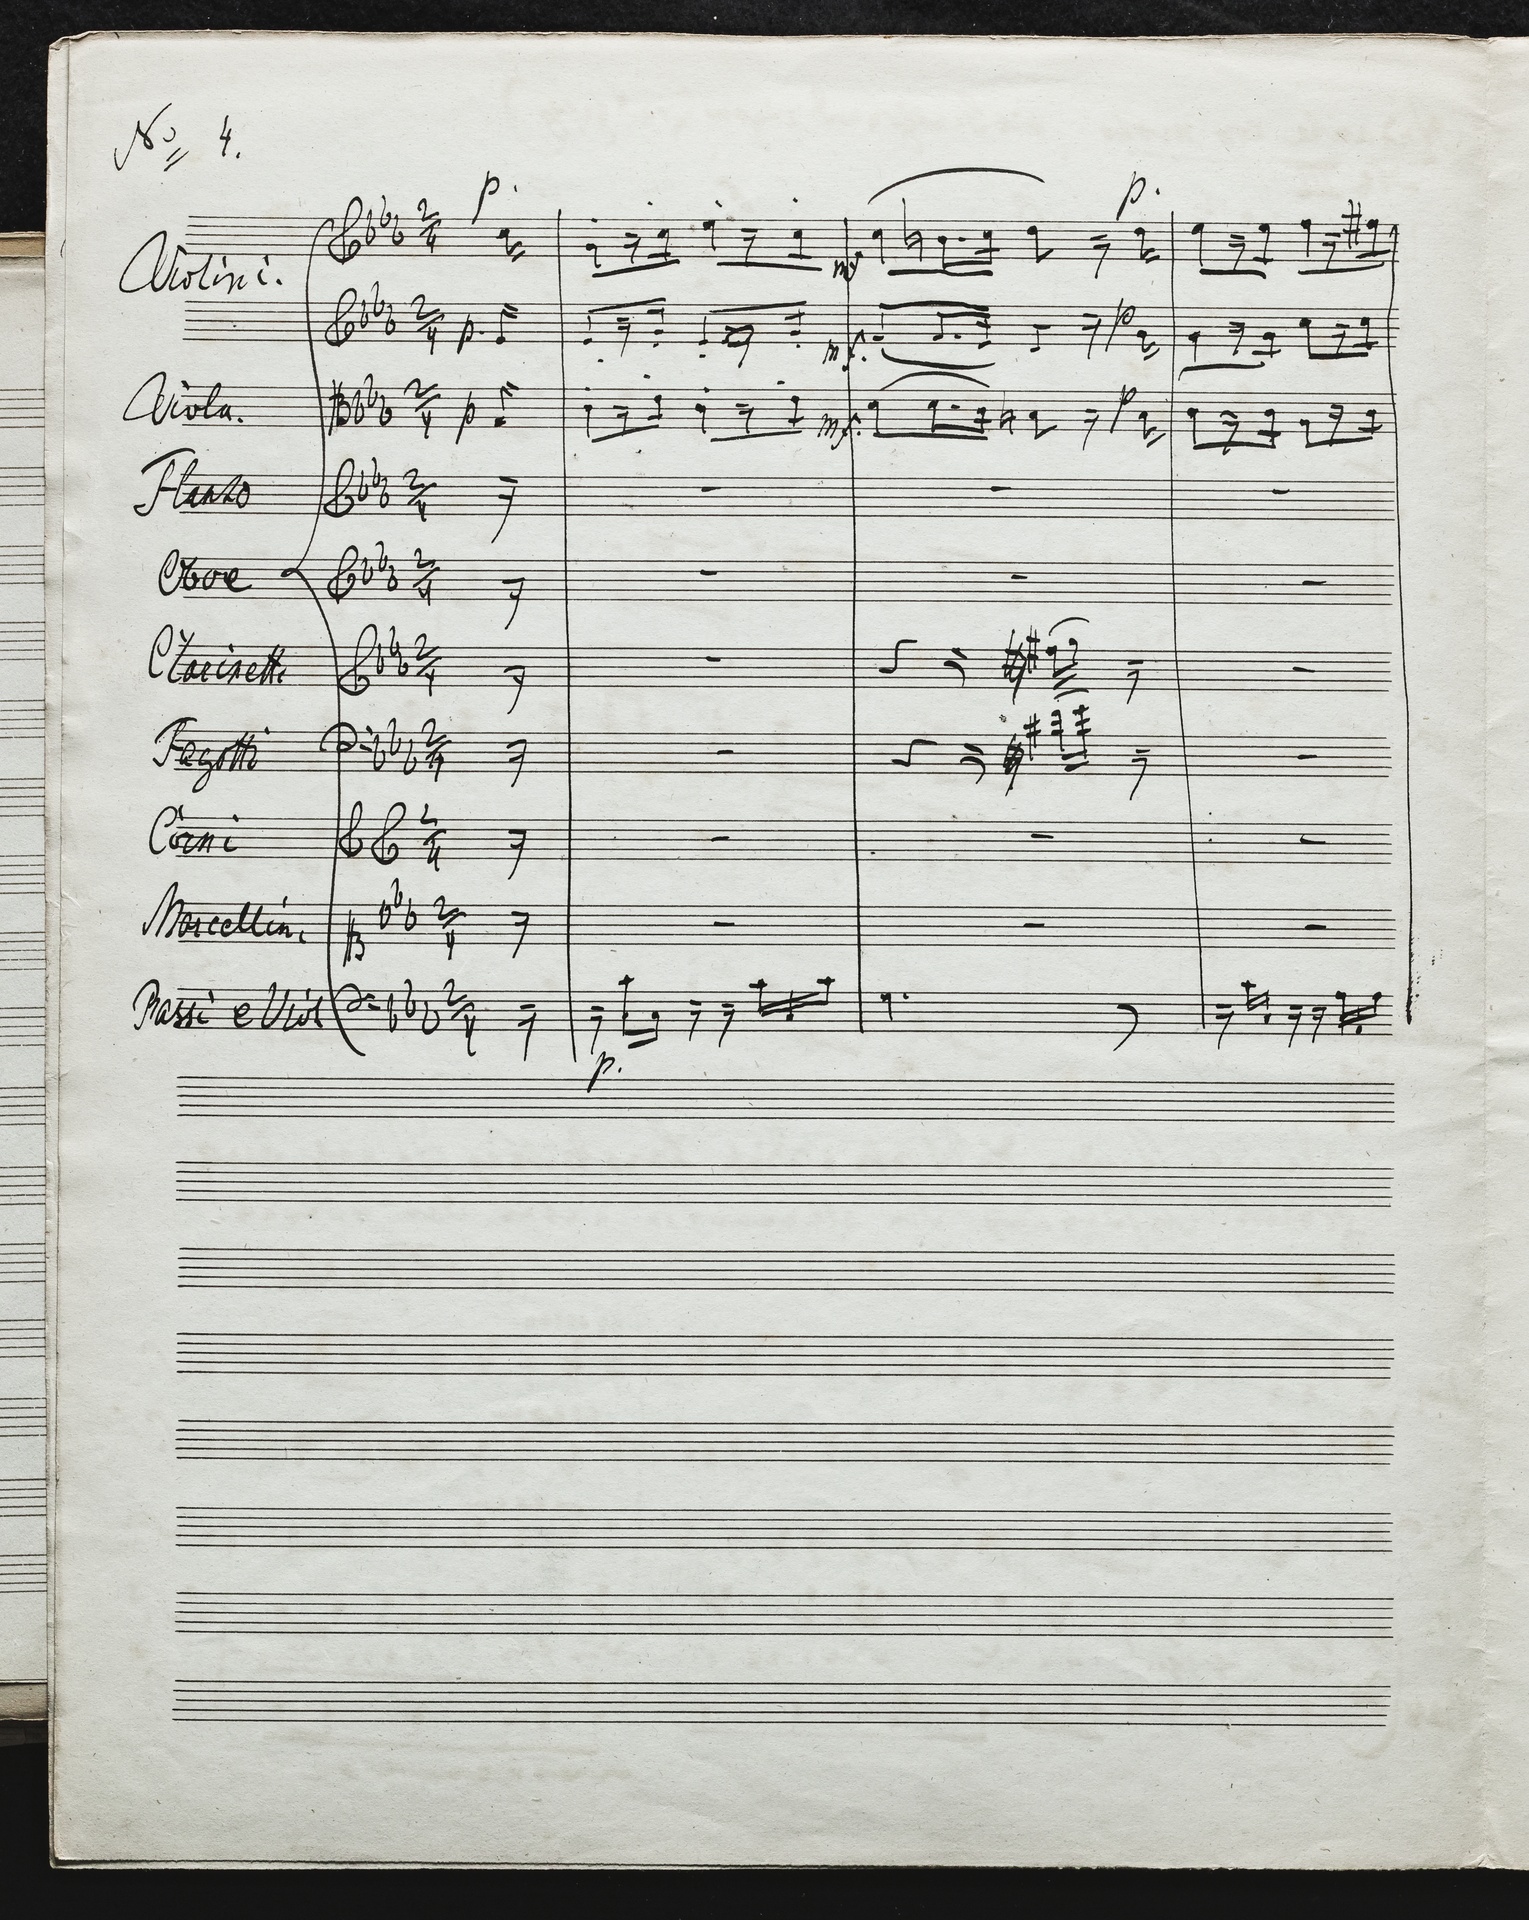 No 4.
p.
p.
Violini.
mf
p.
mf.
p
Viola.
p
mf.
p
Flauto
Oboe
Clarinetti
Fagotti
Corni
Bassi e Viol
p.